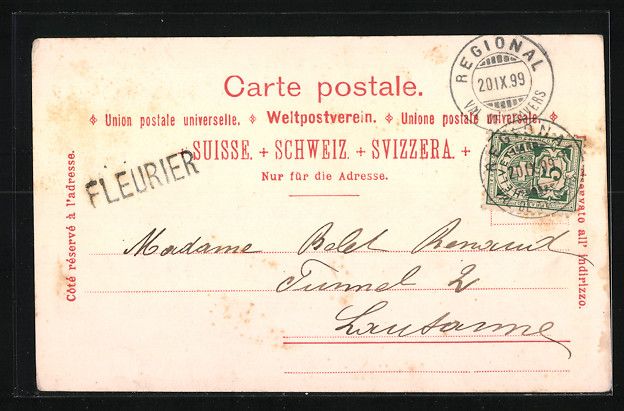 REGIONAL
20 IX.99
VAL DE TRAVERS
Carte postale.
Union postale universelle. Weltpostverein. Unione postale universale.
SUISSE. + SCHWEIZ. + SVIZZERA. +
Nur für die Adresse.
FLEURIER
Côté réservé à l'adresse.
riservato all' indirizzo.
5
Madame Belet Renaud
Tunnel 2
Lausanne